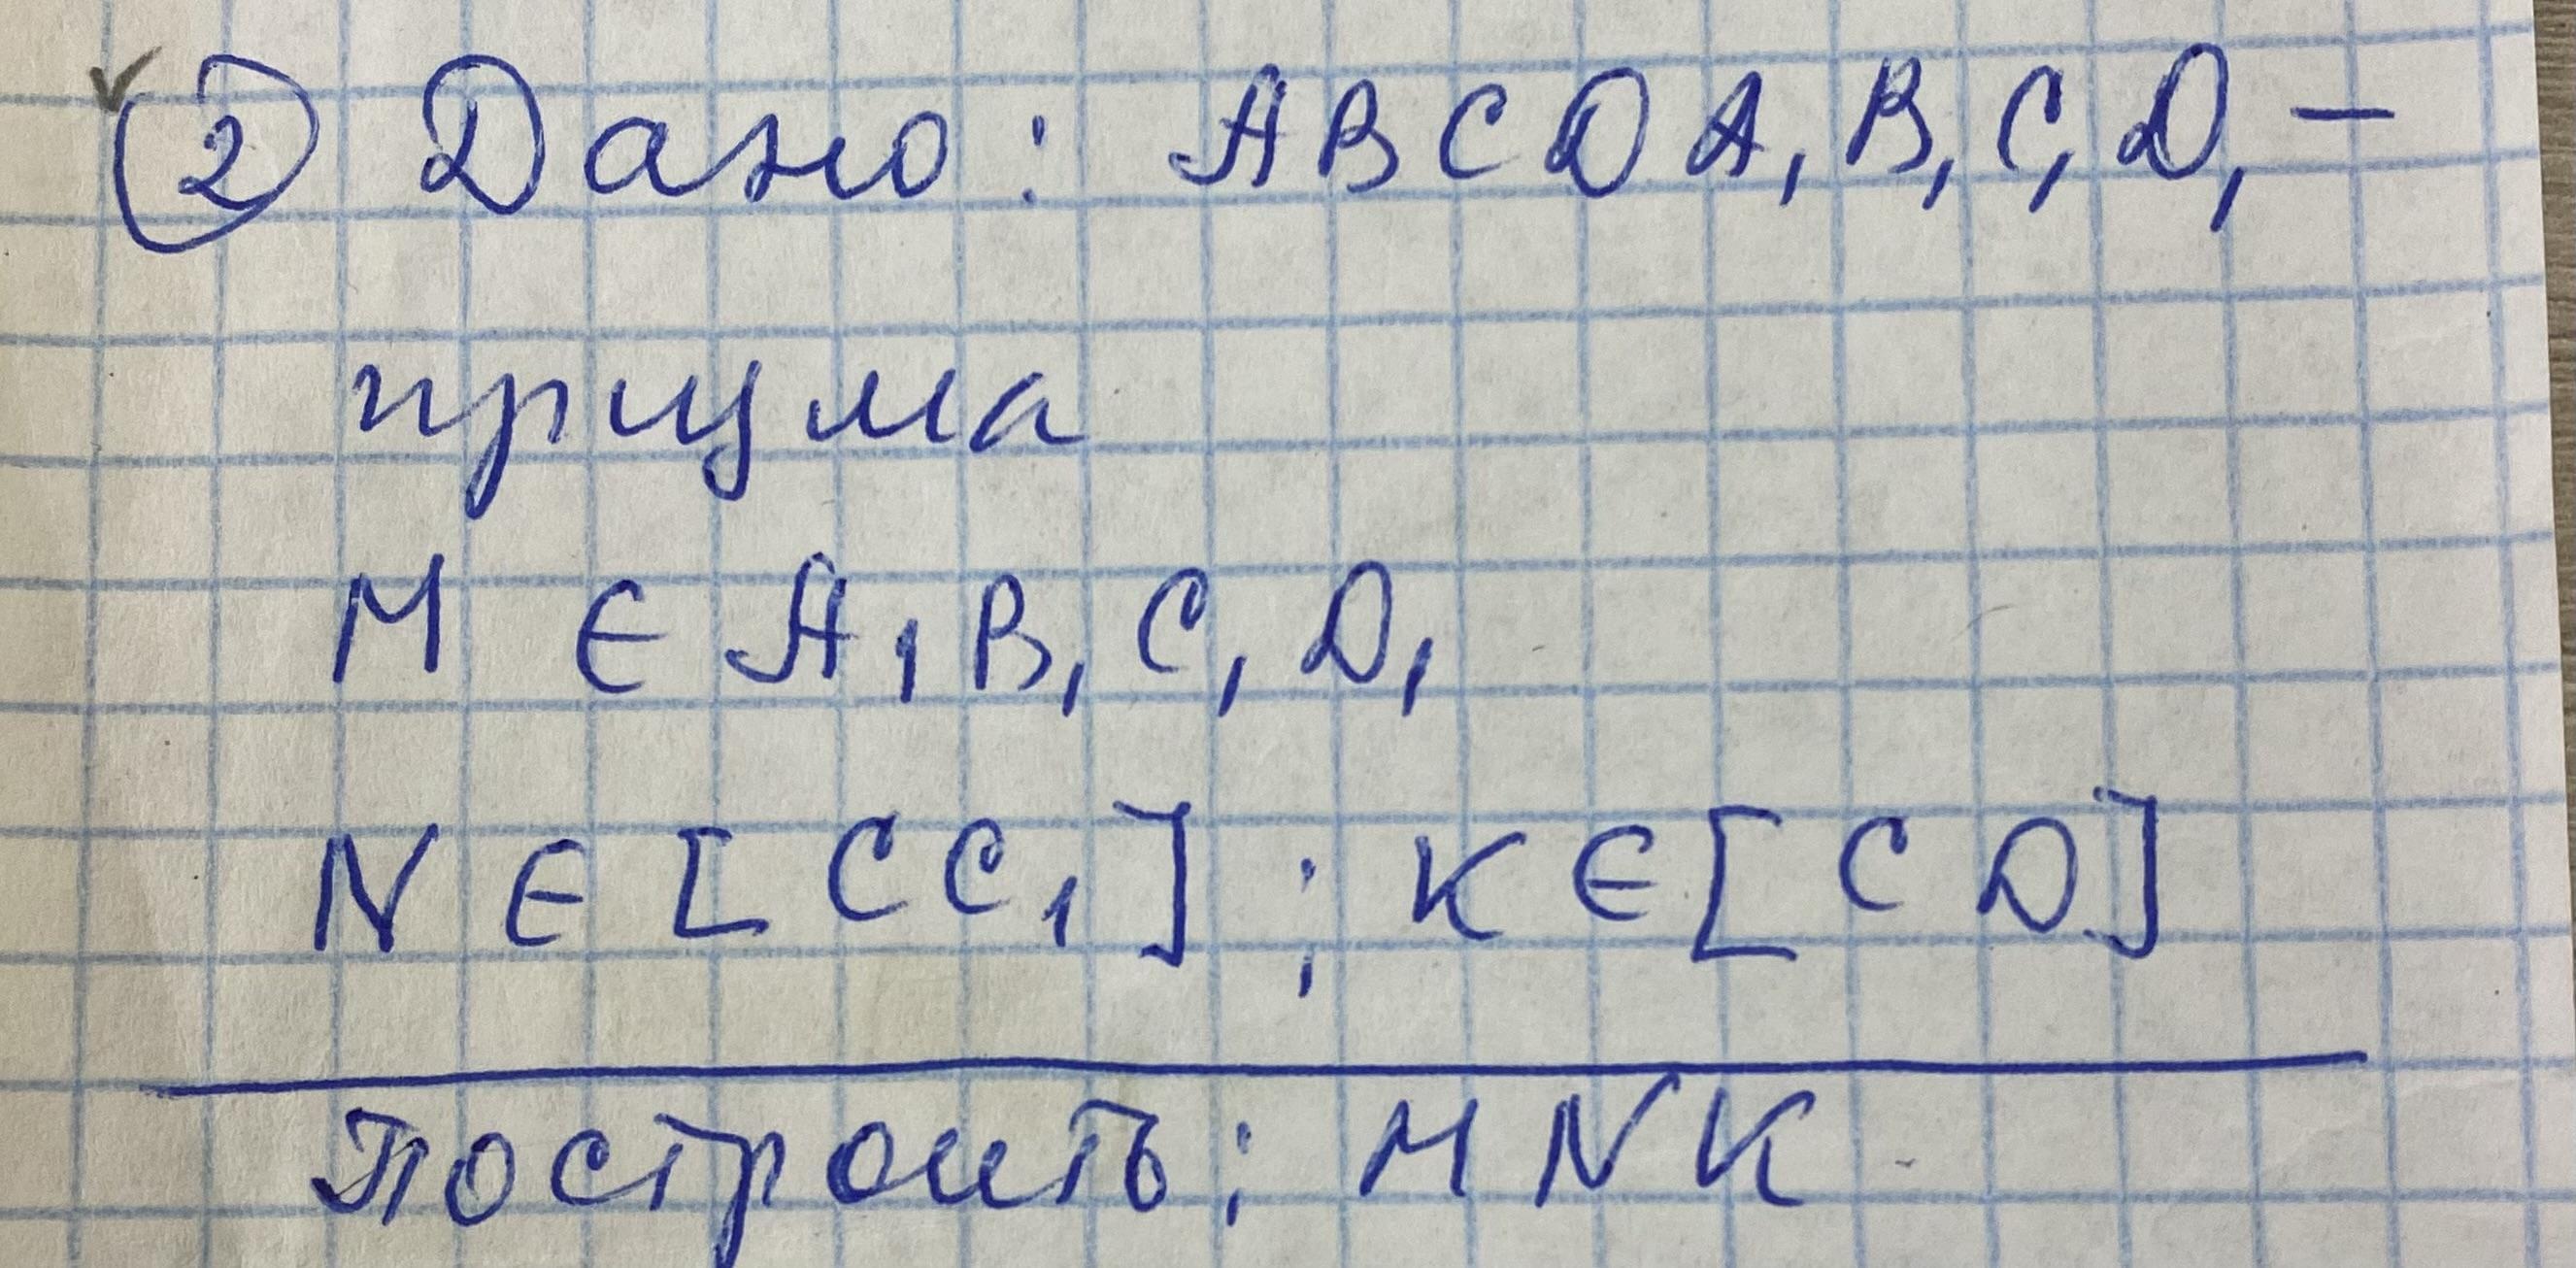 ② Дано: ABCDA₁B₁C₁D₁ –
призма
M ∈ A₁B₁C₁D₁
N ∈ [CC₁] ; K ∈ [CD]
Построить: MNK